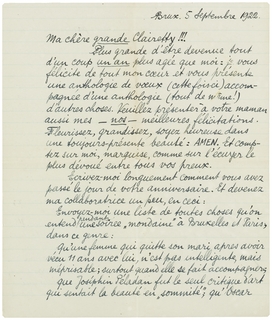 Brux. 5 Septembre 1922.
Ma chère grande Clairetty!!!
Plus grande d'être devenue tout
d'un coup un an plus agée que moi: je vous
félicite de tout mon cœur et vous présente
une anthologie de vœux (cette fois ci) accom-
pagnée d'une anthologie (tout de même!)
d'autres choses. Veuillez présenter à votre maman
aussi mes — nos — meilleures félicitations.
Fleurissez, grandissez, soyez heureuse dans
une toujours-présente beauté: AMEN. Et comp-
tez sur moi, marquises, comme sur l'écuyer le
plus dévoué entre tous vos preux.
Ecrivez-moi longuement comment vous avez
passé le jour de votre anniversaire. Et devenez
ma collaboratrice un peu, en ceci:
Envoyez-moi une liste de toutes choses qu'on
entend pendant une soirée, mondaine à Bruxelles et Paris,
dans ce genre:
Qu'une femme qui quitte son mari après avoir
vécu 11 ans avec lui, n'est pas intelligente, mais
méprisable; surtout quand elle se fait accompagner
que Joséphin Péladan fut le seul critique d'art
qui sentait la beauté en "somnité"; qu'Oscar